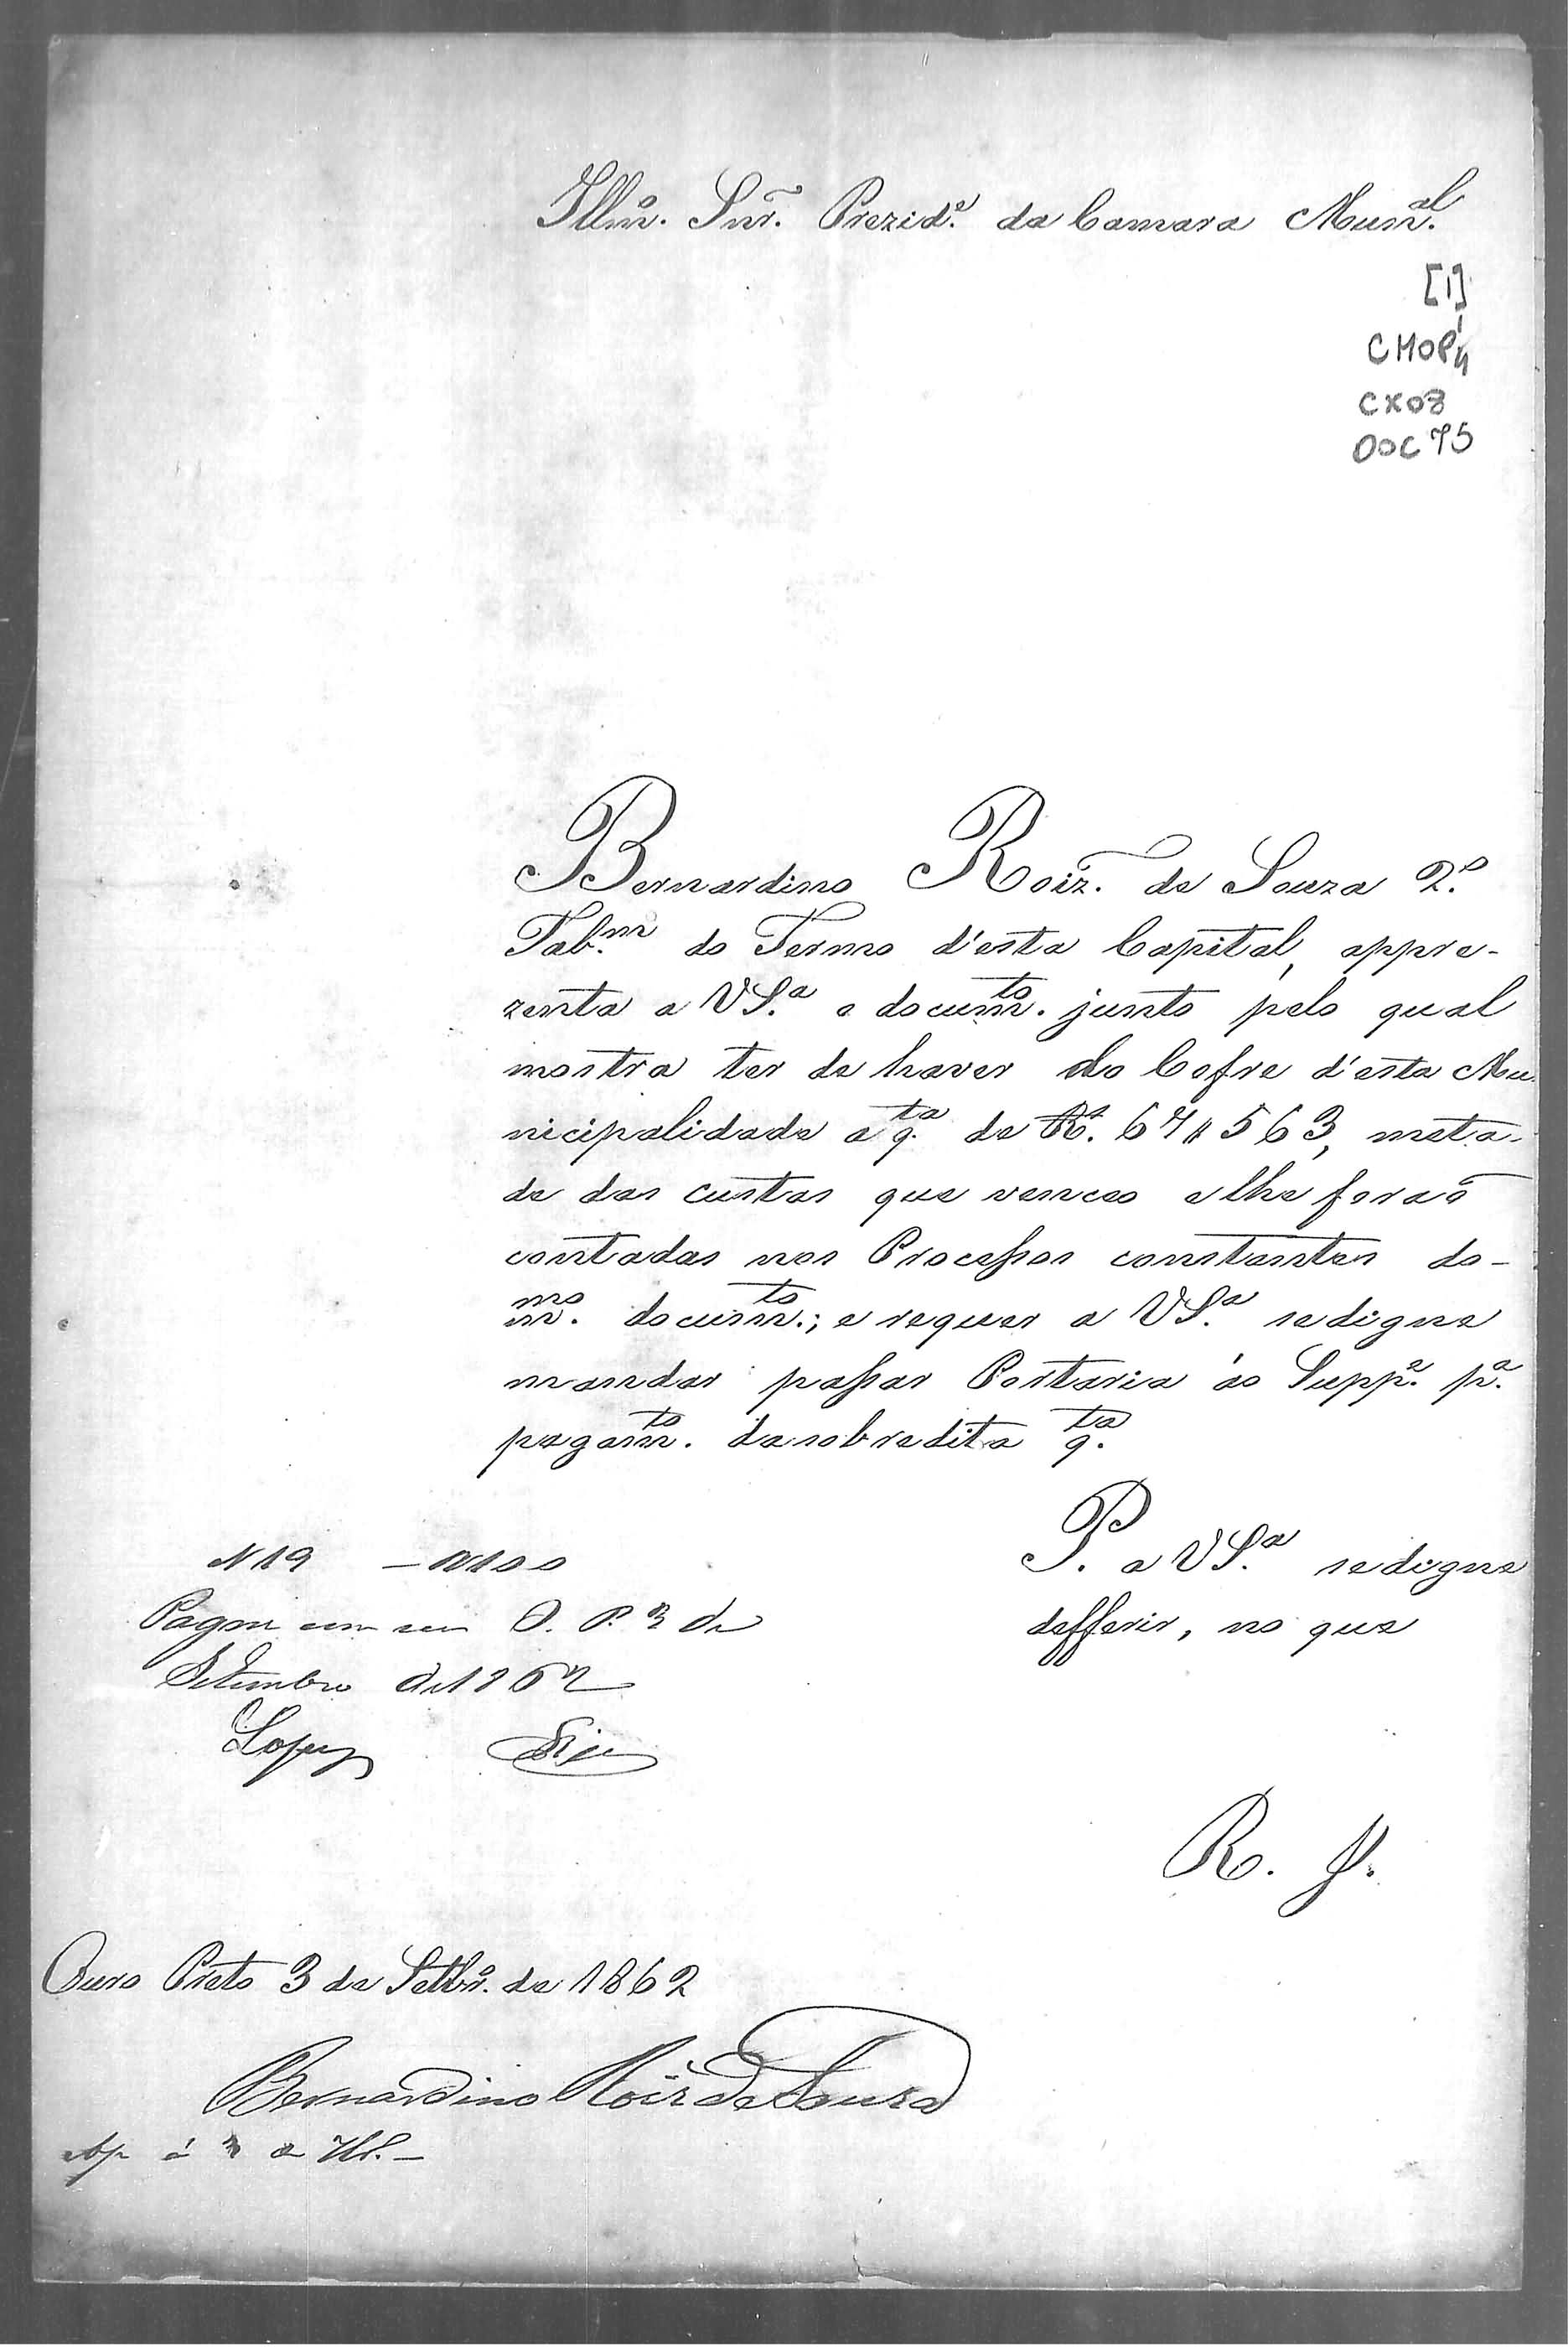 Illmº. Snr. Prezid.e da Camara Munal.
[1]
CMOP 1/4
CX03
DOC 75
Bernardino Roiz. de Souza 2.º
Tab.m do Termo d'esta Capital, appre-
zenta a VS.a o documto. junto pelo qual
mostra ter de haver do Cofre d'esta Mu
nicipalidade a qta. de Rs. 67#563, meta-
de das custas que venceo e lhe forão
contadas nos Processos constantes do-
mmo. documto.; e requer a VS.a se digne
mandar passar Portaria áo Suppe. pa.
pagamto. da sobredita qta.
P. a VS.a se digne
defferir, no que
N 19 — 100
Pagou O. P. 3 de
Setembro de 1862
Lopes
R. J.
Ouro Preto 3 de Setbrº. de 1862
Bernardino Roiz de Souza